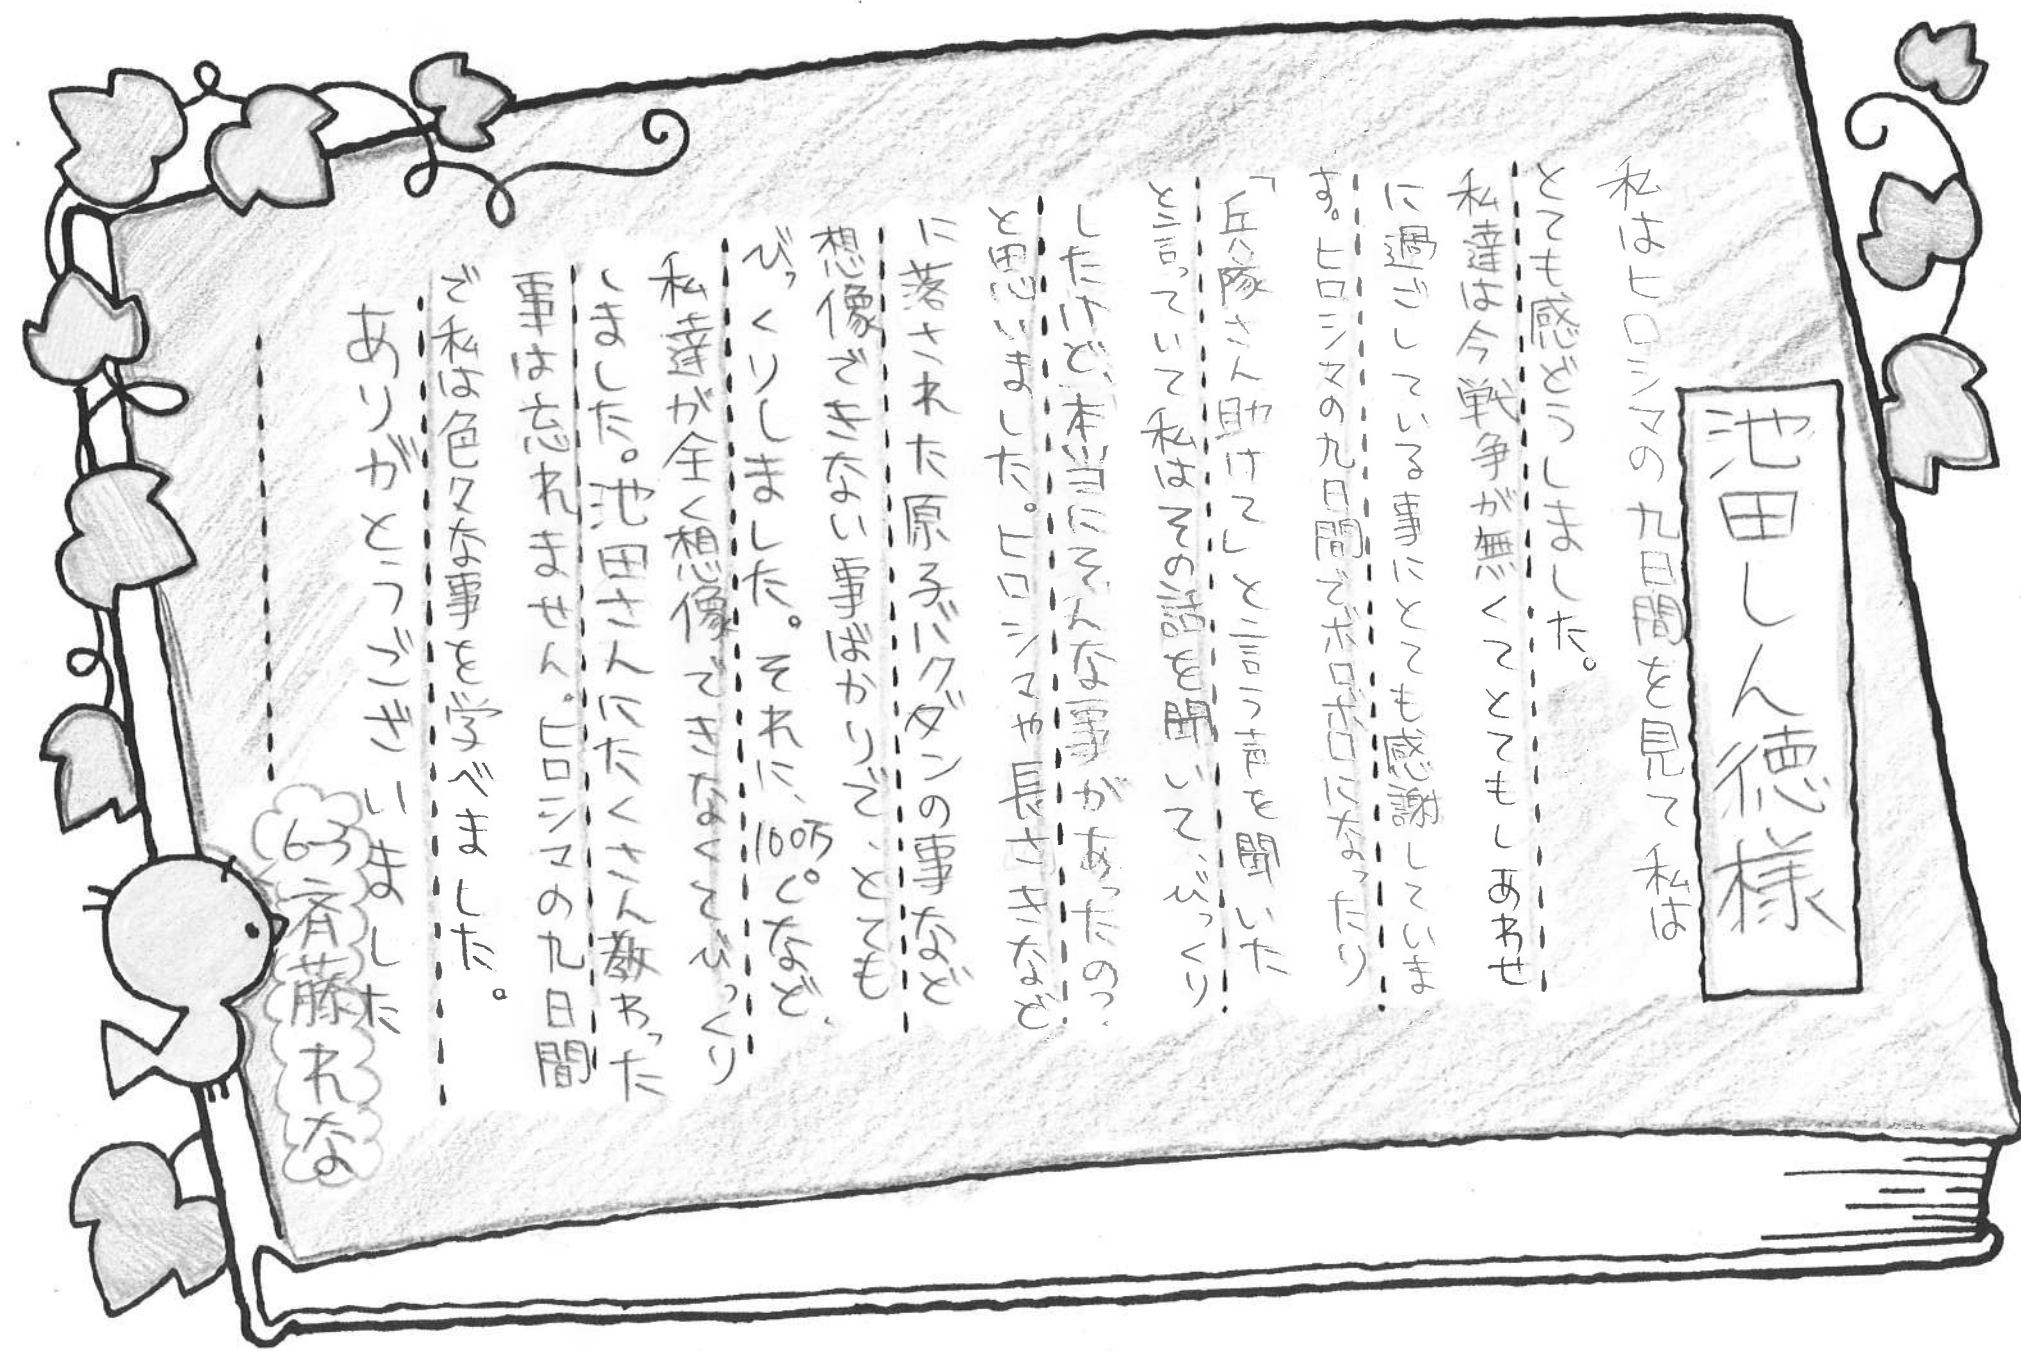 池田しん徳様
私はヒロシマの九日間を見て私は
とても感どうしました。
私達は今戦争が無くてとてもしあわせ
に過ごしている事にとても感謝していま
す。ヒロシマの九日間でボロボロになったり
「兵隊さん助けて」と言う声を聞いた
と言っていて私はその話を聞いて、びっくり
したけど、本当にそんな事があったの?
と思いました。ヒロシマや長さきなど
に落された原子バクダンの事など
想像できない事ばかりで、とても
びっくりしました。それに、100万℃など、
私達が全く想像できなくてびっくり
しました。池田さんにたくさん教わった
事は忘れません。ヒロシマの九日間
で私は色々な事を学べました。
ありがとうございました
6-3 斉藤れな